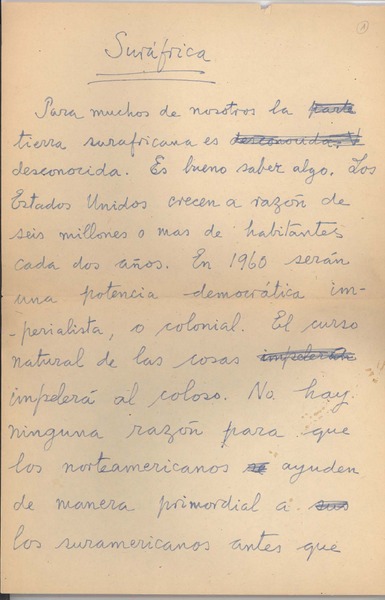 Suráfrica
Para muchos de nosotros la parte
tierra surafricana es desconocida. N
desconocida. Es bueno saber algo. Los
Estados Unidos crecen a razón de
seis millones o mas de habitantes
cada dos años. En 1960 serán
una potencia democrática im-
-perialista, o colonial. El curso
natural de las cosas impelerán
impelerá al coloso. No hay
ninguna razón para que
los norteamericanos se ayuden
de manera primordial a sus
los suramericanos antes que